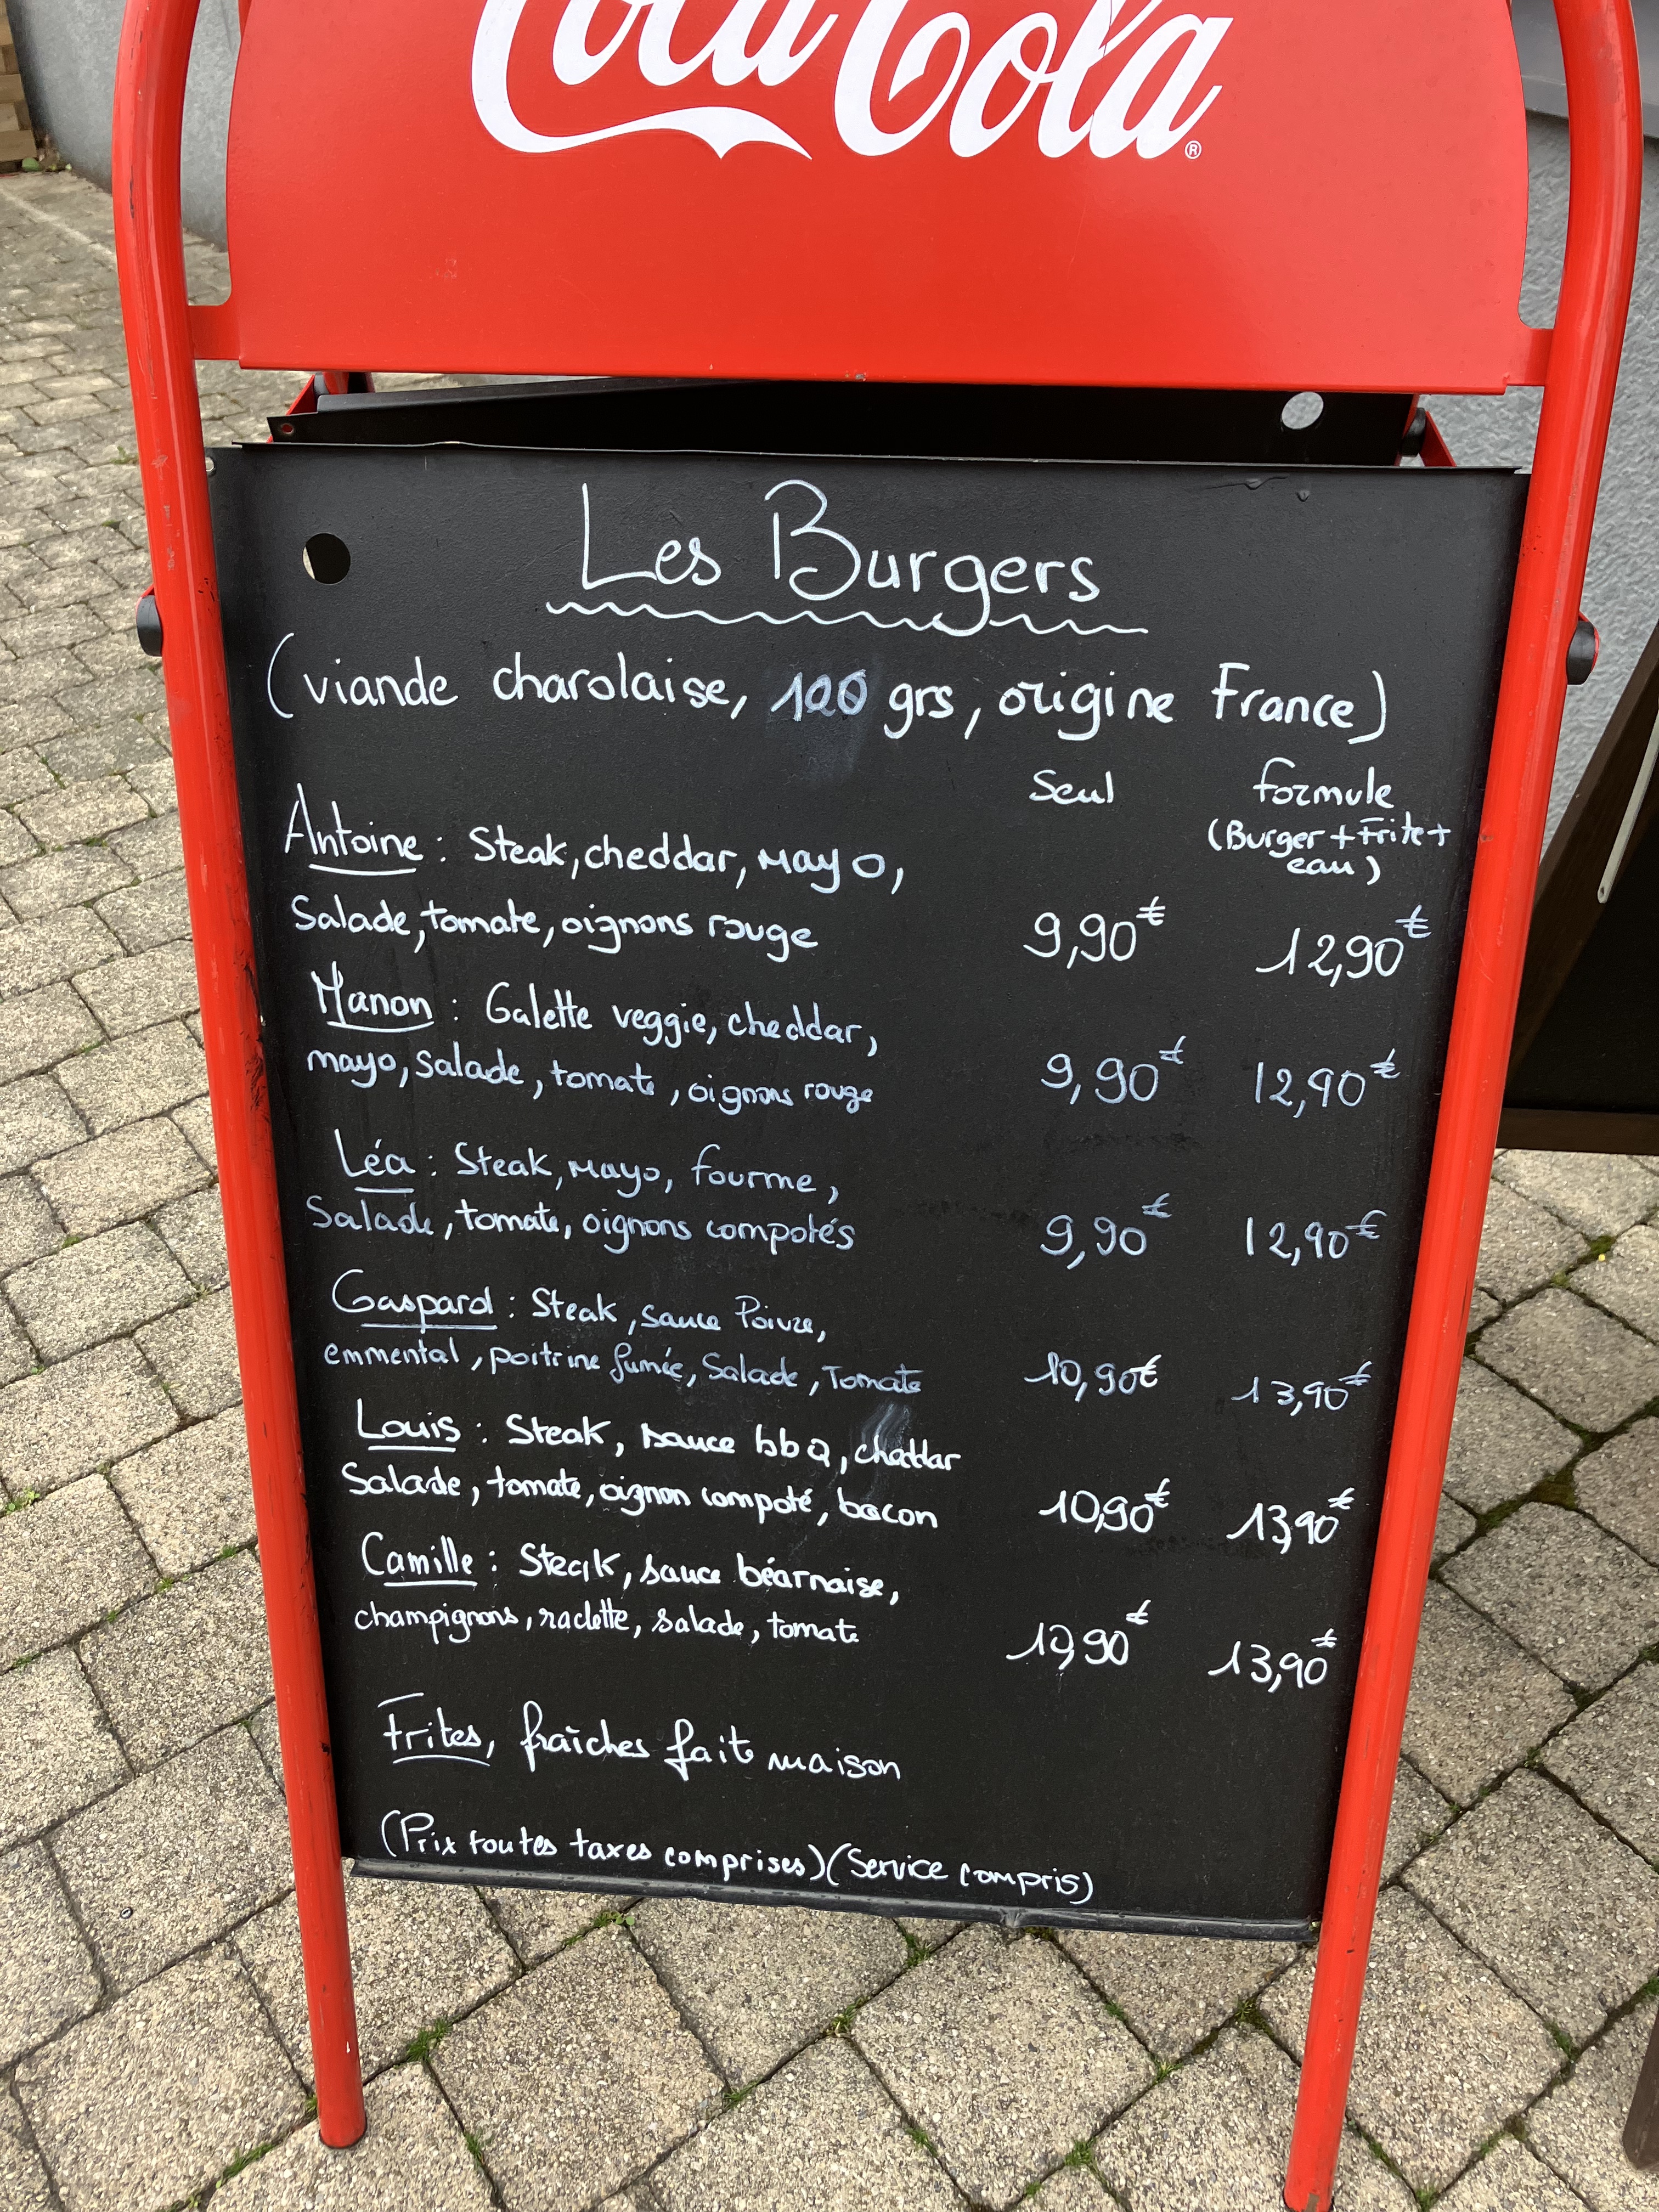 Coca-Cola®
Les Burgers
(viande charolaise, 100 grs, origine France)
Seul formule
(Burger + Frite +
eau)
Antoine : Steak, cheddar, mayo,
Salade, tomate, oignons rouge 9,90€ 12,90€
Manon : Galette veggie, cheddar,
mayo, salade, tomate, oignons rouge 9,90€ 12,90€
Léa : Steak, mayo, fourme,
Salade, tomate, oignons compotés 9,90€ 12,90€
Gaspard : Steak, sauce Poivre,
emmental, poitrine fumée, Salade, Tomate 10,90€ 13,90€
Louis : Steak, sauce bbQ, cheddar
Salade, tomate, oignon compoté, bacon 10,90€ 13,90€
Camille : Steak, sauce béarnaise,
champignons, raclette, salade, tomate 10,90€ 13,90€
Frites, fraîches fait maison
(Prix toutes taxes comprises) (Service compris)